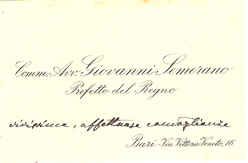 Comm. Avv. Giovanni Semerano
Prefetto del Regno
vivissime, affettuose condoglianze
Bari - Via Vittorio Veneto, 16